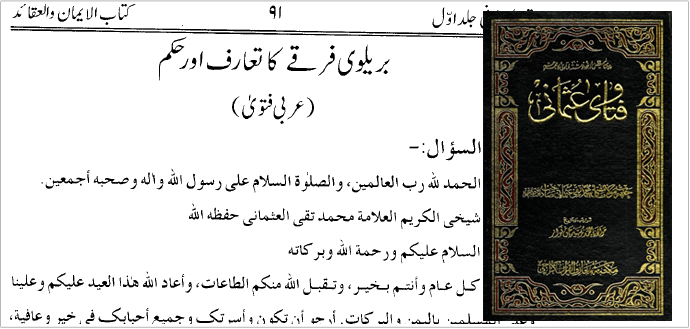 جلد اوّل ۹۱ کتاب الایمان والعقائد
بریلوی فرقے کا تعارف اور حکم
(عربی فتویٰ)
السؤال:-
الحمد لله رب العالمین، والصلوٰة السلام علی رسول الله واٰله وصحبه أجمعین.
شیخی الکریم العلامة محمد تقی العثمانی حفظه الله
السلام علیکم ورحمة الله وبرکاته
کل عام وأنتم بخیر، وتقبل الله منکم الطاعات، وأعاد الله هذا العید علیکم وعلینا
المسلمین بالیمن والبرکات. أرجو أن تکون وأسرتک وجمیع أحبابک فی خیر وعافیة،
فتاویٰ عثمانی